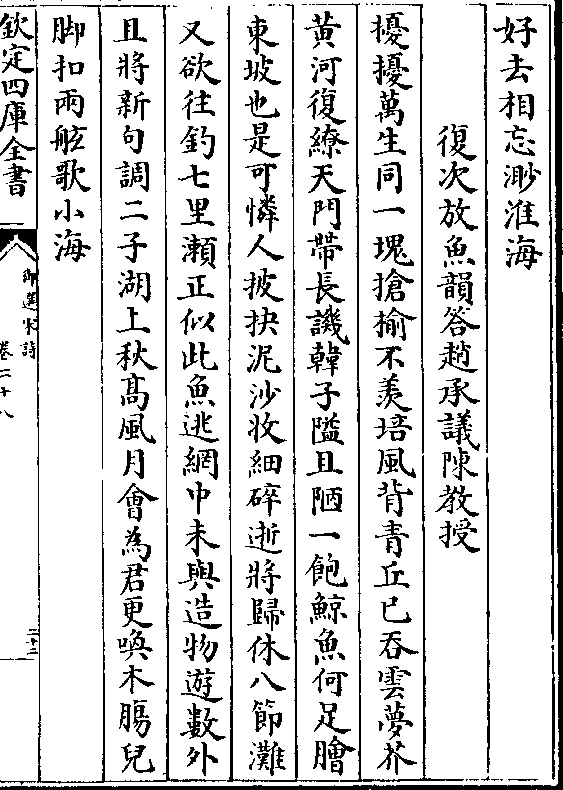 好去相忘渺淮海
復次放魚韻答趙承議陳教授
擾擾萬生同一塊搶揄不羨培風背青丘已吞雲夢芥
黄河復繚天門帶長譏韓子隘且陋一飽鯨魚何足膾
東坡也是可憐人披抉泥沙收細碎逝將歸休八節灘
又欲往釣七里瀨正似此魚逃網中未與造物遊數外
且將新句調二子湖上秋髙風月會為君更喚木腸兒
脚扣兩舷歌小海
欽定四庫全書
御選宋詩
卷二十八
二十二